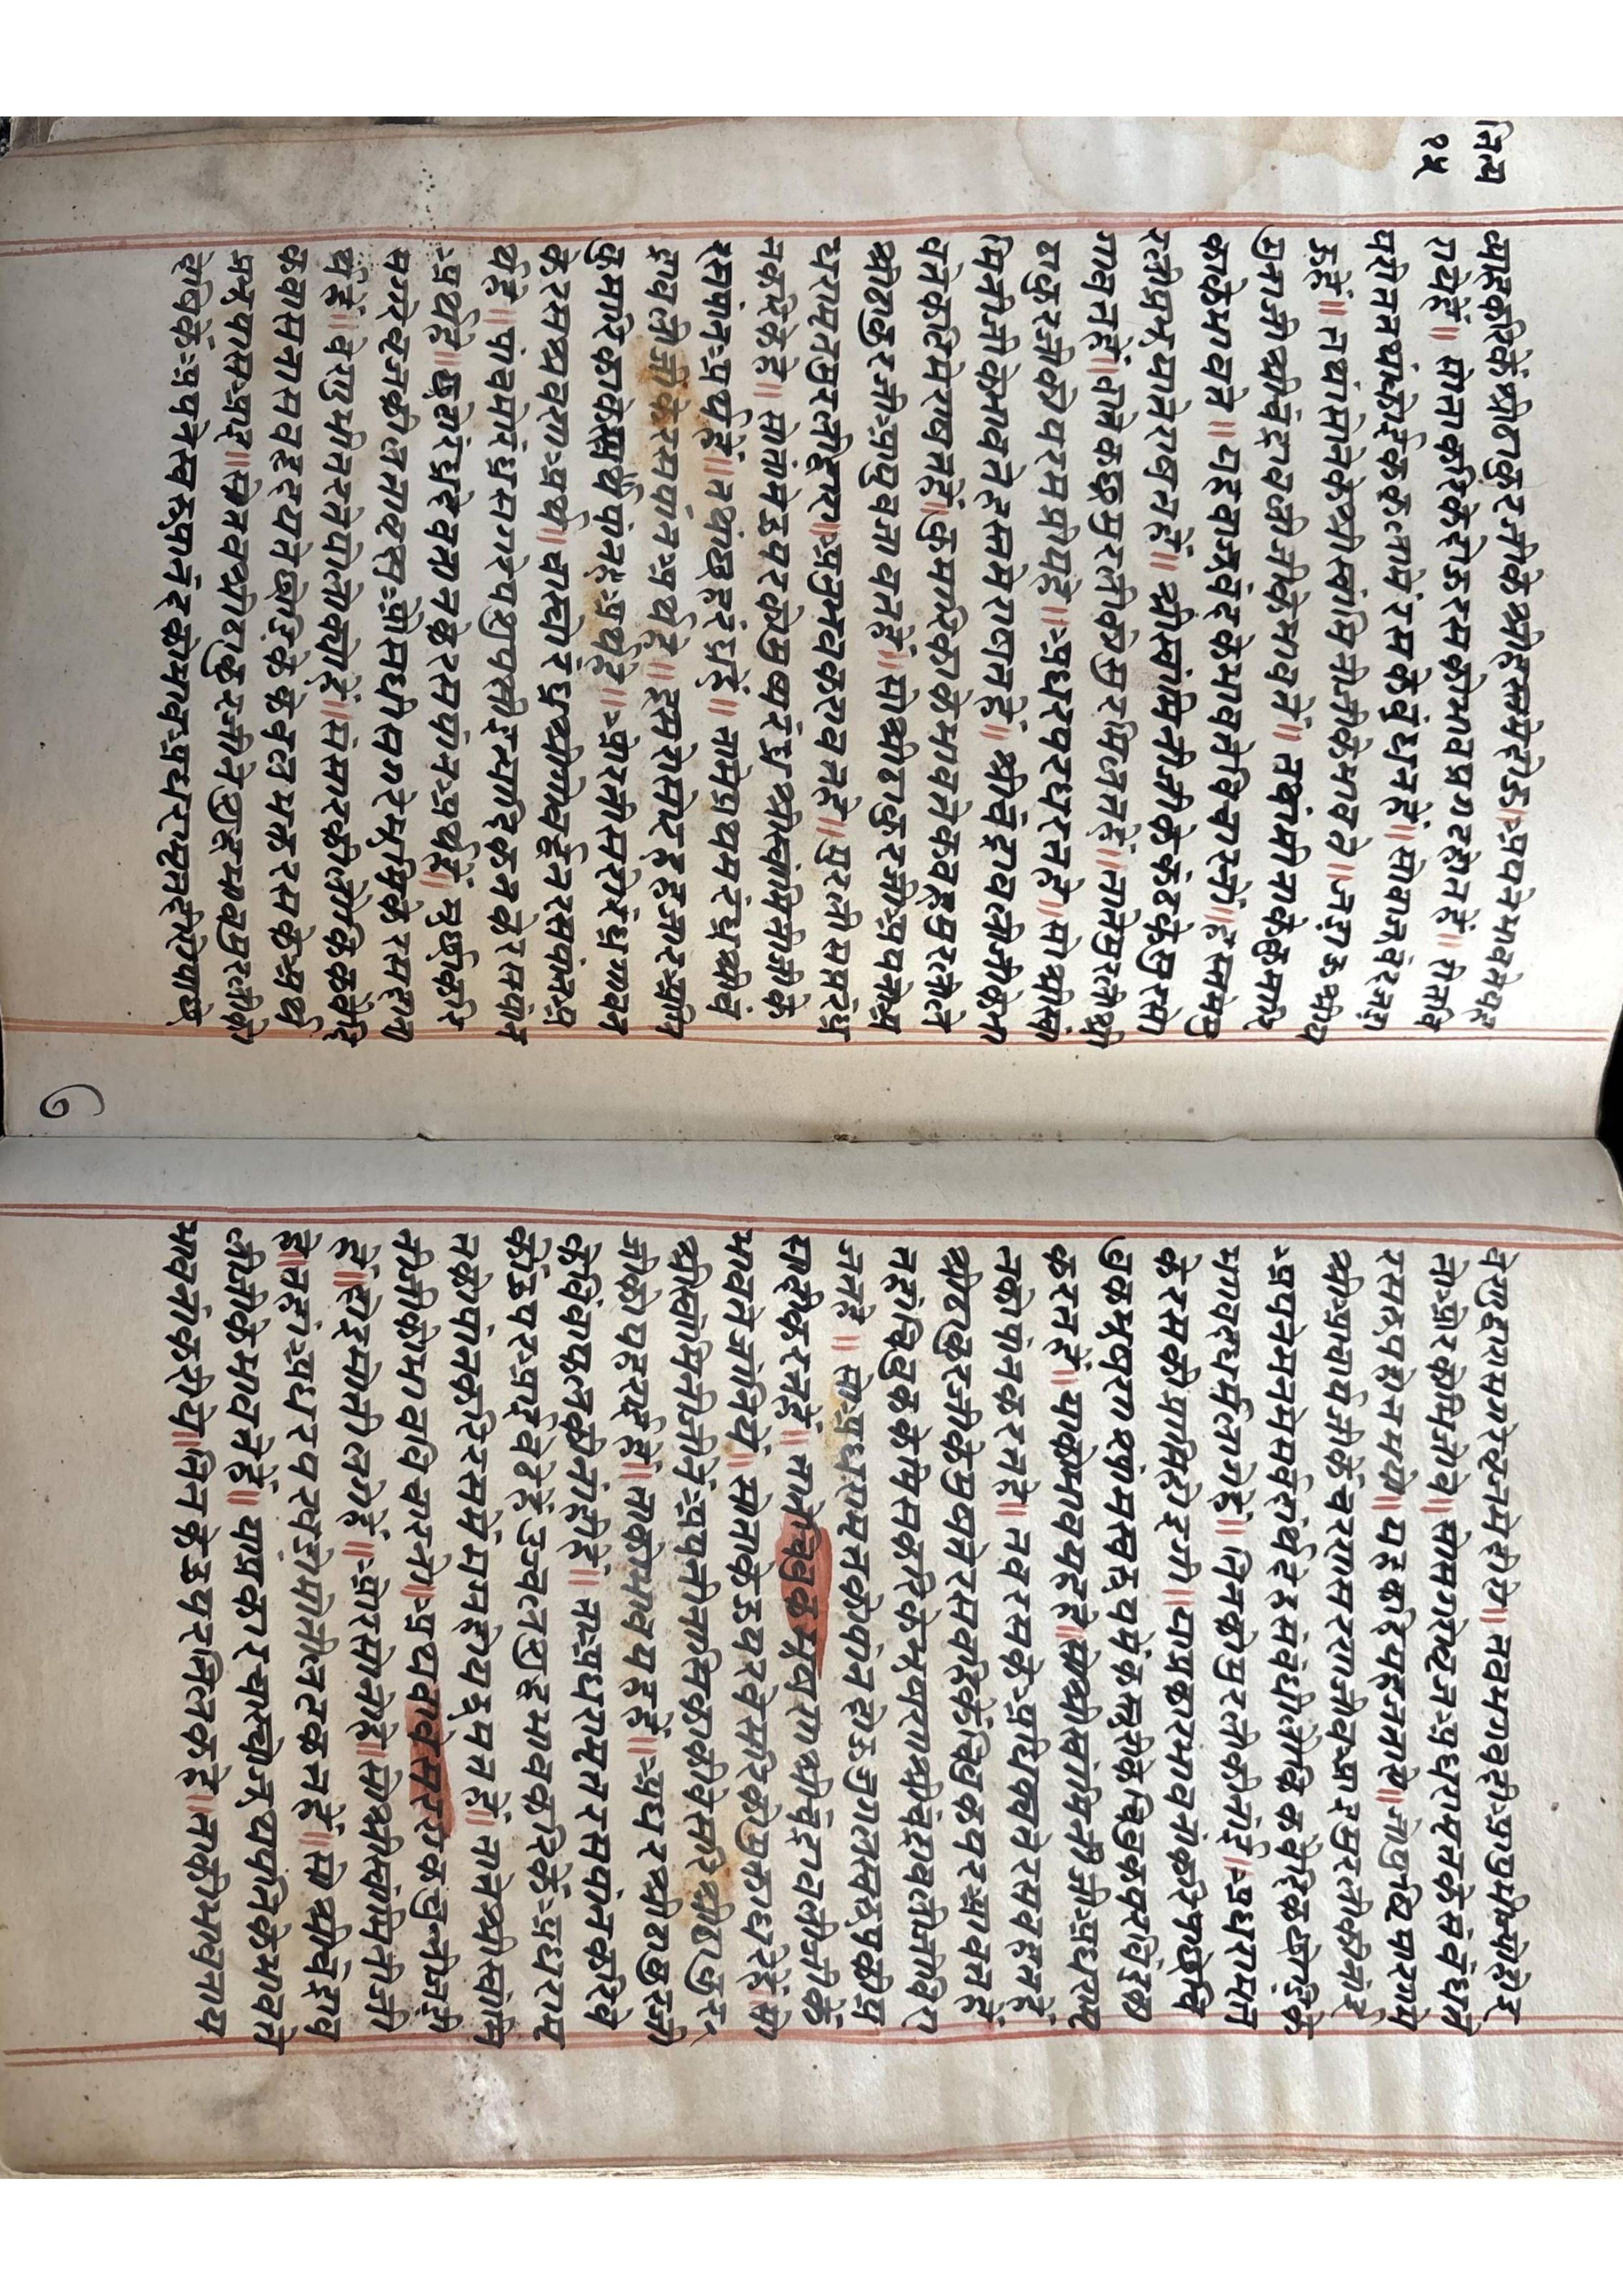 नित्य
१५
करिकें श्रीठाकुरजीके श्रीहस्तमें अपने भावसेंयह
राधेहें॥ सोताकरिकेंदोऊरसकोभावप्रगटहोतहे॥ रीतवि
परीततथांछोटेकेकलामेंरसकेबंधनहे॥ सोबाजूबंदनहा
ऊहें॥ तथासोनेकेश्रीस्वामिनीजीकेभावते॥ जडाऊश्रीय
मुनाजीश्रीचंद्रावलीजीकेभावतें॥ नवांमीनाकेकुमारि
काकेभावते॥ यहबाजूबंदकेभावतेविचारनो॥ हस्तमेंमु
रलीप्रभूयातेराषतहें॥ श्रीस्वांमिनीजीकेकंठकेसुरसो
गावतहें॥ तामेंकछूमुरलीकोसुरमिलतहें॥ तातेमुरलीश्री
ठाकुरजीकोपरमप्रीयहे॥ अधरपरधरतहें॥ सोश्रीस्वां
मिनीजीकेभावतेहस्तमेंराषतहें॥ श्रीचंद्रावलीजीकेभा
वतेकटिमेंराषतहें॥ कुमारिकाकेभावतेकबहूमुरलीले
श्रीठाकुरजीआपुषबजावतहें॥ सोश्रीठाकुरजीअपनोअ
धरामृतमुरलीद्वारा॥ अनुभवकरावतहें॥ मुरलीसप्तरंध्र
नकरिकेहे॥ सोतामेंऊपरकोमुष्यरंध्रश्रीस्वांमिनीजीके
रसपांनअर्थहें॥ तथांछहरंध्रहें॥ तामेंप्रथमरंध्रश्रीचं
द्रावलीजीकेरसपांनअर्थहे॥ दूसरोसोरहहजारअग्नि
कुमारिकाकेअर्थपांनहेअर्थहे॥ ओरतीसरोरंध्रगावन
केरसश्रवणअर्थ॥ चोथोरंध्रश्रीगोवर्द्धनरसपांनअ
र्थहे॥ पांचमोरंध्रसगरेपशुपक्षीइत्यादिकनकेरसपांन
अर्थहे॥ छठोरंध्रदेवतानकेरसपांनअर्थहें॥ मुष्यकरि
सगरेव्रजकीलताव्रक्षओषधीसगरेभूमिकेरसदांना
र्थहें॥ वेणुगीतरसेयोलोकोहें॥ संसारकीलोकिकवैदि
कवासनासबहदयतेछोडिकेकेवलभक्तरसकेअर्थ
प्रभूपासआइ॥ तिनकोश्रीठाकुरजीनेशुद्धभावमुरलीको
रोपिकेंअपनेस्वरूपानंदकोभावअधरामृतहेसोपाछे
७
वेणुद्वारासगरेव्रजमेंहोय॥ तबभगवदीआपुसीमेंपोहोंच
तो॥ ओरकीमिलोय॥ सोसगरोव्रजअधरामृतकेसंबंधते
रसरूपहोतभयो॥ यहकहिवेंयहजताये॥ जोपुष्टिमारगमें
श्रीआचार्यजीकेंचरणसरणजीवआइमुरलीकीनांइ
अपनेमनमेंसबसंबंधिदेहसंबंधीलोकिकवैदिकछोडिकें
भगवदधर्ममिलागेहें॥ तिनकोमुरलीकीनांइ॥ अधरामृत
केरसकीप्राप्तिहोइगी॥ याप्रकारभावनाकरे पाछेचि
बुकभूषणश्यांमस्वरूपमेंकसूतीके चिबुकपरबिंदका
करतहें॥ याकोभावयहहे॥ जोश्रीस्वामिनीजीअधरामृ
तकोपांनकरतहे॥ तबरसकेआधिक्यतेरसबहतहें
श्रीठाकुरजीकेमुषतेरसबहिकेंचिबुकपरआवतहे
तहांचिबुककेमिसकरिकेंभूषणश्रीचंद्रावलीजीबिरा
जतहे॥ सोअधरामृतकोपांनदोऊजुगलस्वरूपकोप्र
सादीकरतहें॥ तातेचिबुकभूषणश्रीचंद्रावलीजीके
भावतेजांनिये॥ सोताकेऊपरबेसरिकोमुक्ताधरेहें॥ सो
श्रीस्वांमिनीजीनेंअपनीनासिकाकीबेसरिश्रीठाकुर
जीकोपहराईहें॥ ताकोभावयहहे॥ अधरश्रीठाकुरजी
केबिंबाफलकीनांइहें॥ ताअधरामृतरसपांनकरिवे
कोंऊपरआइबेठेहेंउज्वलशुद्धभावकरिकेंअधरामृ
तकोपांनकरिरसमेंमगनहोयझूमतहें॥ तातेश्रीस्वांमि
नीजीकोभावविचारनो॥ अथवाबेसरिकचुनीजडी
हें॥ दोइमोतीलगेहें॥ ओरसोनोहें॥ सोश्रीस्वांमिनीजी
हें॥ तहांअधरपरबडोमोतीलटकतहें॥ सोश्रीचंद्राव
लीजीकेभावतेहें॥ याप्रकारचारयोजूथपतिकेभावते
भावनांकरिये॥ तिनकेऊपरतिलकहे॥ ताकीभावनाय